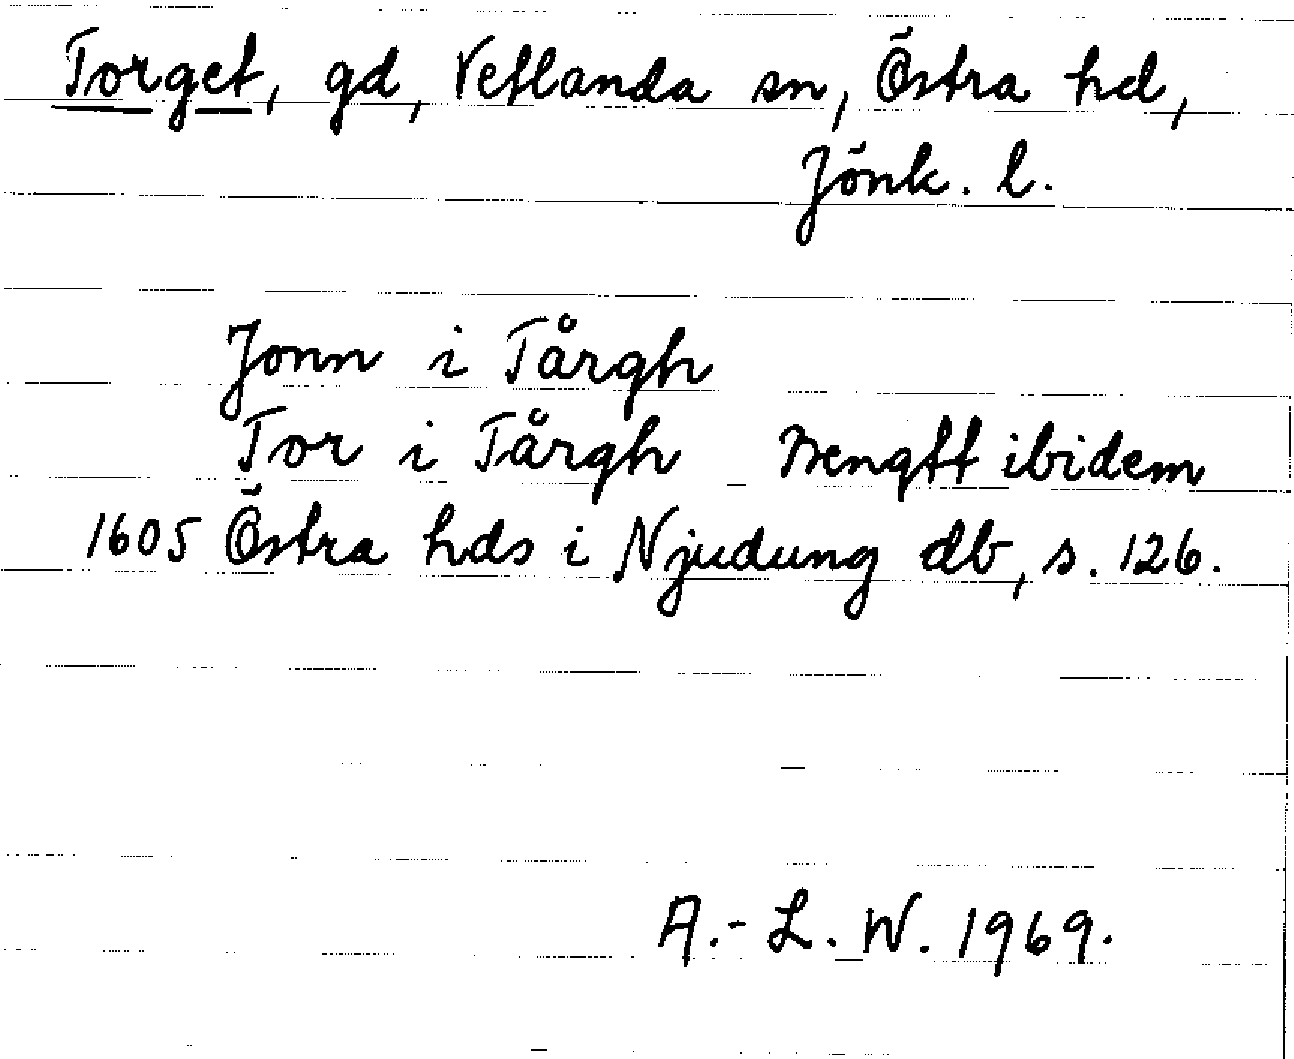 Torget, gd, Vetlanda sn, Östra hd,
Jönk. l.
Jonn i Tårgh
Tor i Tårgh Bengtt ibidem
1605 Östra hds i Njudung db, s. 126.
A.-L. W. 1969.